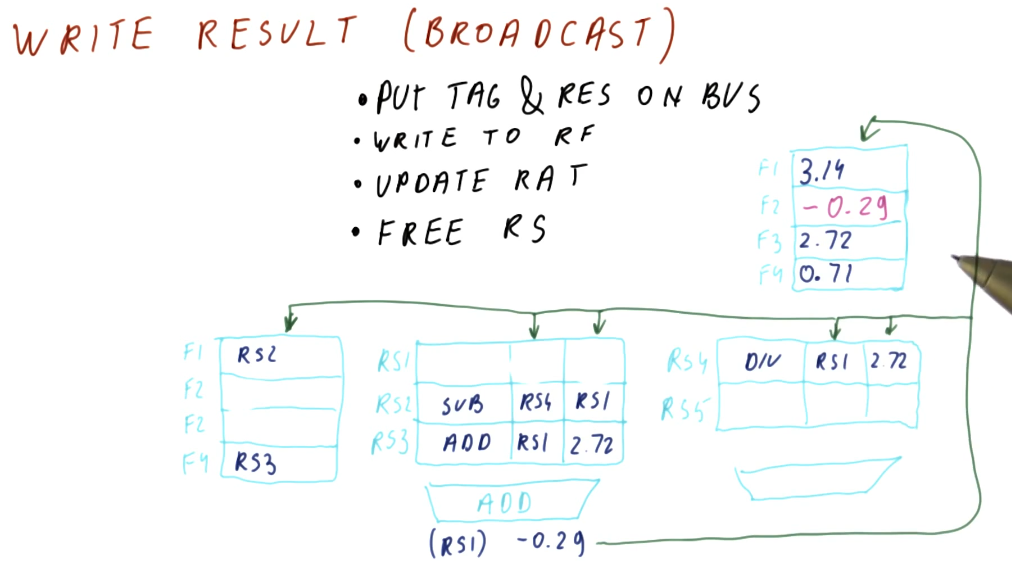 WRITE RESULT (BROADCAST)
• PUT TAG & RES ON BUS
• WRITE TO RF
• UPDATE RAT
• FREE RS
F1 3.14
F2 -0.29
F3 2.72
F4 0.71
F1 RS2
F2
F2
F4 RS3
RS1
RS2 SUB RS4 RS1
RS3 ADD RS1 2.72
ADD
(RS1) -0.29
RS4 DIV RS1 2.72
RS5